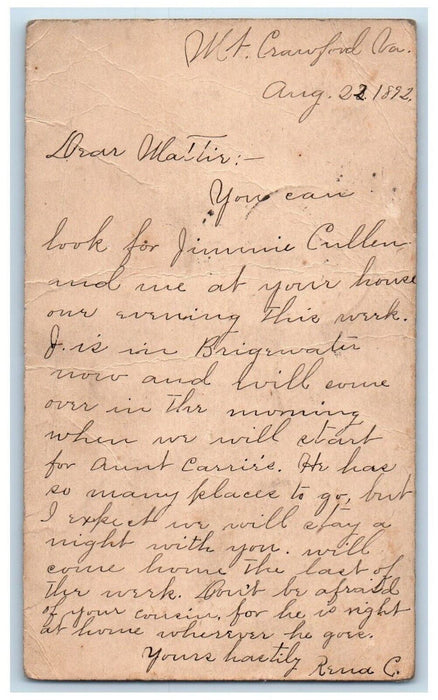 Mt. Crawford Va.
Aug. 22 1892.
Dear Mattie:-
You can
look for Jimmie Cullen
and me at your house
one evening this week.
J. is in Brigewater
now and will come
over in the morning
when we will start
for Aunt Carrie's. He has
so many places to go, but
I expect we will stay a
night with you. will
come home the last of
the week. Don't be afraid
of your cousin, for he is right
at home wherever he goes.
Yours hastily Rena C.